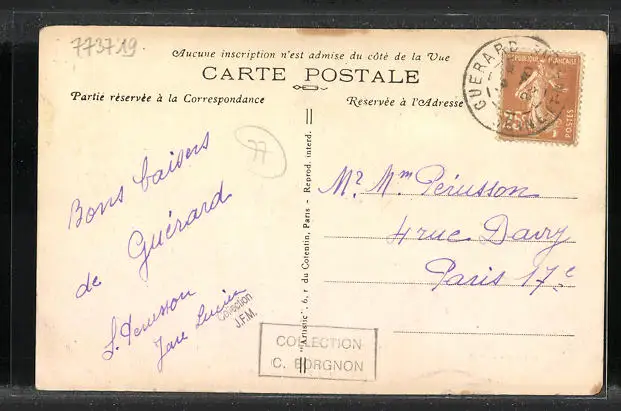 773719.
Aucune inscription n'est admise du côté de la Vue
CARTE POSTALE
Partie réservée à la Correspondance
Réservée à l'Adresse
GUÉRARD
RÉPUBLIQUE FRANÇAISE
POSTES
77
Bons baisers
de Guérard
Mr Mme Périsson
4 rue Davy
Paris 17e
"Artistic". 6, r du Cotentin, Paris - Reprod. interd.
Collection
J.F.M.
COLLECTION
C. BORGNON